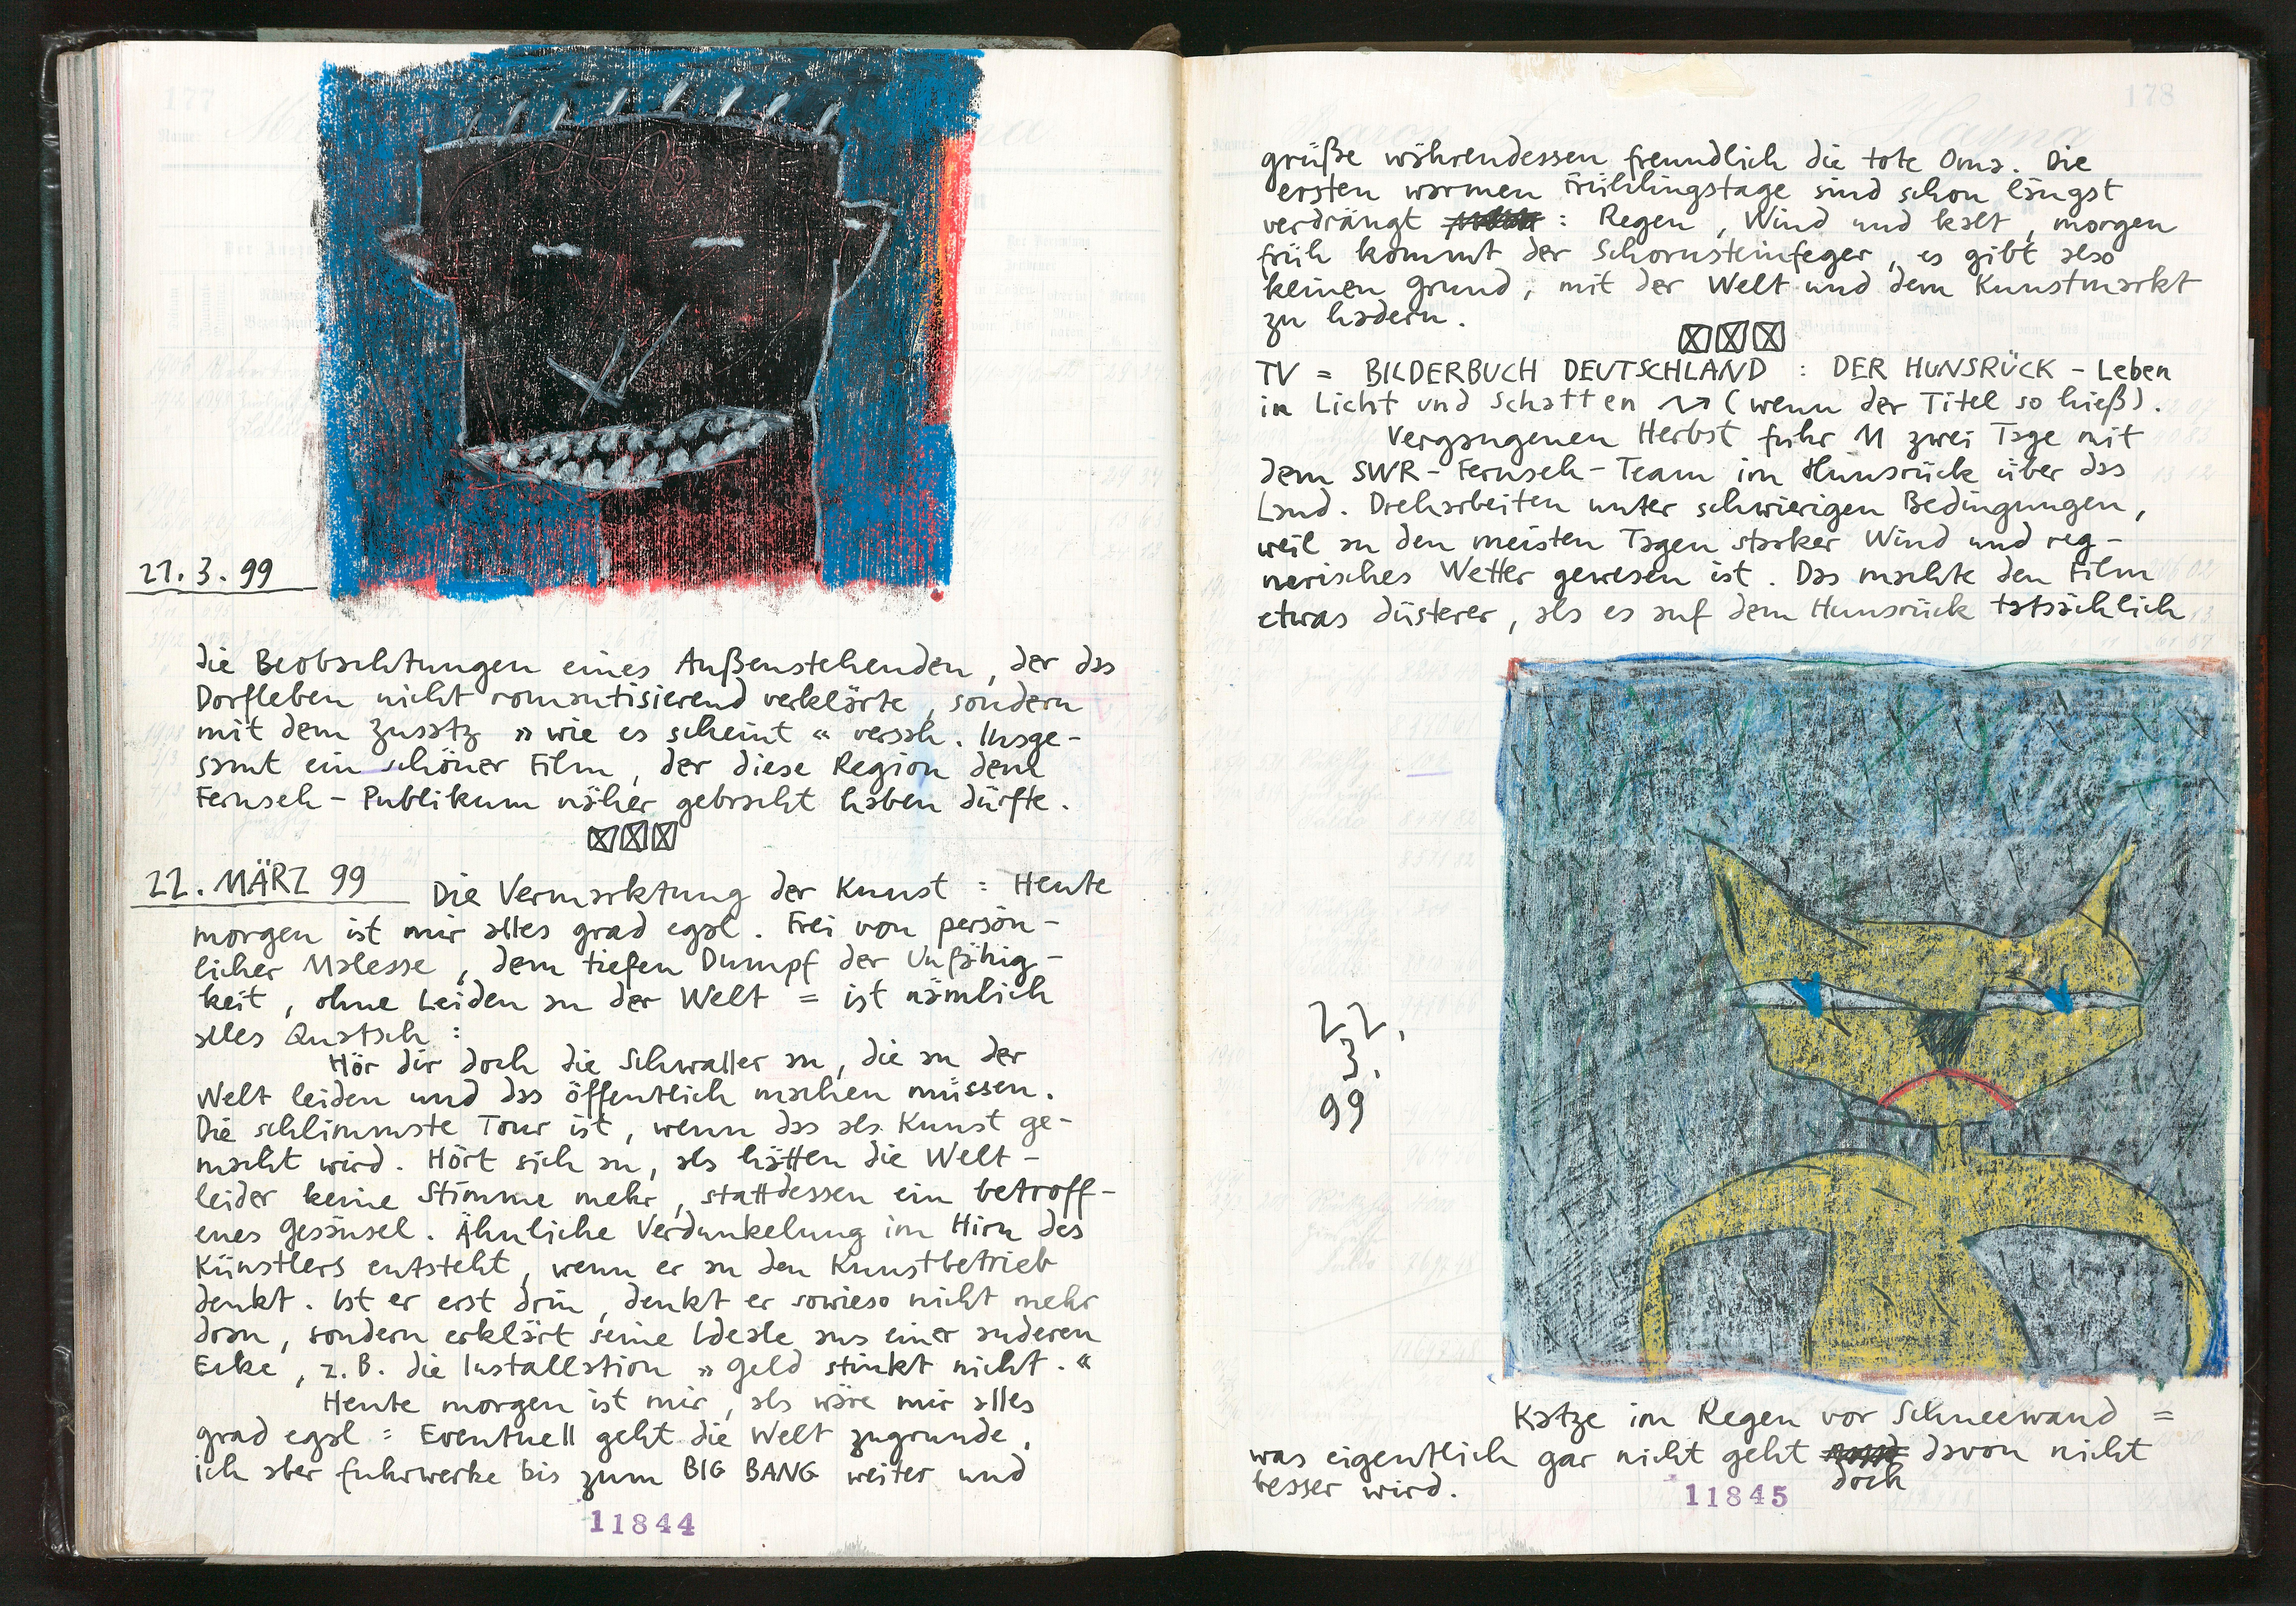 177
21.3.99
die Beobachtungen eines Außenstehenden, der das
Dorfleben nicht romantisierend verklärte, sondern
mit dem Zusatz »wie es scheint« versah. Insge-
samt ein schöner Film, der diese Region dem
Fernseh-Publikum näher gebracht haben dürfte.
22. MÄRZ 99 Die Vermarktung der Kunst = Heute
morgen ist mir alles grad egal. Frei von persön-
licher Malesse, dem tiefen Dumpf der Unfähig-
keit, ohne Leiden an der Welt = ist nämlich
alles Quatsch:
Hör dir doch die Schwaller an, die an der
Welt leiden und das öffentlich machen müssen.
Die schlimmste Tour ist, wenn das als Kunst ge-
macht wird. Hört sich an, als hätten die Welt-
leider keine Stimme mehr, stattdessen ein betroff-
enes Gesäusel. Ähnliche Verdunkelung im Hirn des
Künstlers entsteht, wenn er an den Kunstbetrieb
denkt. Ist er erst drin, denkt er sowieso nicht mehr
dran, sondern erklärt seine Ideale aus einer anderen
Ecke, z.B. die Installation »Geld stinkt nicht.«
Heute morgen ist mir, als wäre mir alles
grad egal = Eventuell geht die Welt zugrunde,
ich aber fuhrwerke bis zum BIG BANG weiter und
11844
178
grüße währendessen freundlich die tote Oma. Die
ersten warmen Frühlingstage sind schon längst
verdrängt : Regen, Wind und kalt, morgen
früh kommt der Schornsteinfeger, es gibt also
keinen Grund, mit der Welt und dem Kunstmarkt
zu hadern.
TV = BILDERBUCH DEUTSCHLAND : DER HUNSRÜCK - Leben
in Licht und Schatten (wenn der Titel so hieß).
Vergangenen Herbst fuhr M zwei Tage mit
dem SWR-Fernseh-Team im Hunsrück über das
Land. Dreharbeiten unter schwierigen Bedingungen,
weil an den meisten Tagen starker Wind und reg-
nerisches Wetter gewesen ist. Das machte den Film
etwas düsterer, als es auf dem Hunsrück tatsächlich
22.
3.
99
Katze im Regen vor Schneewand =
was eigentlich gar nicht geht davon nicht
doch
besser wird.
11845